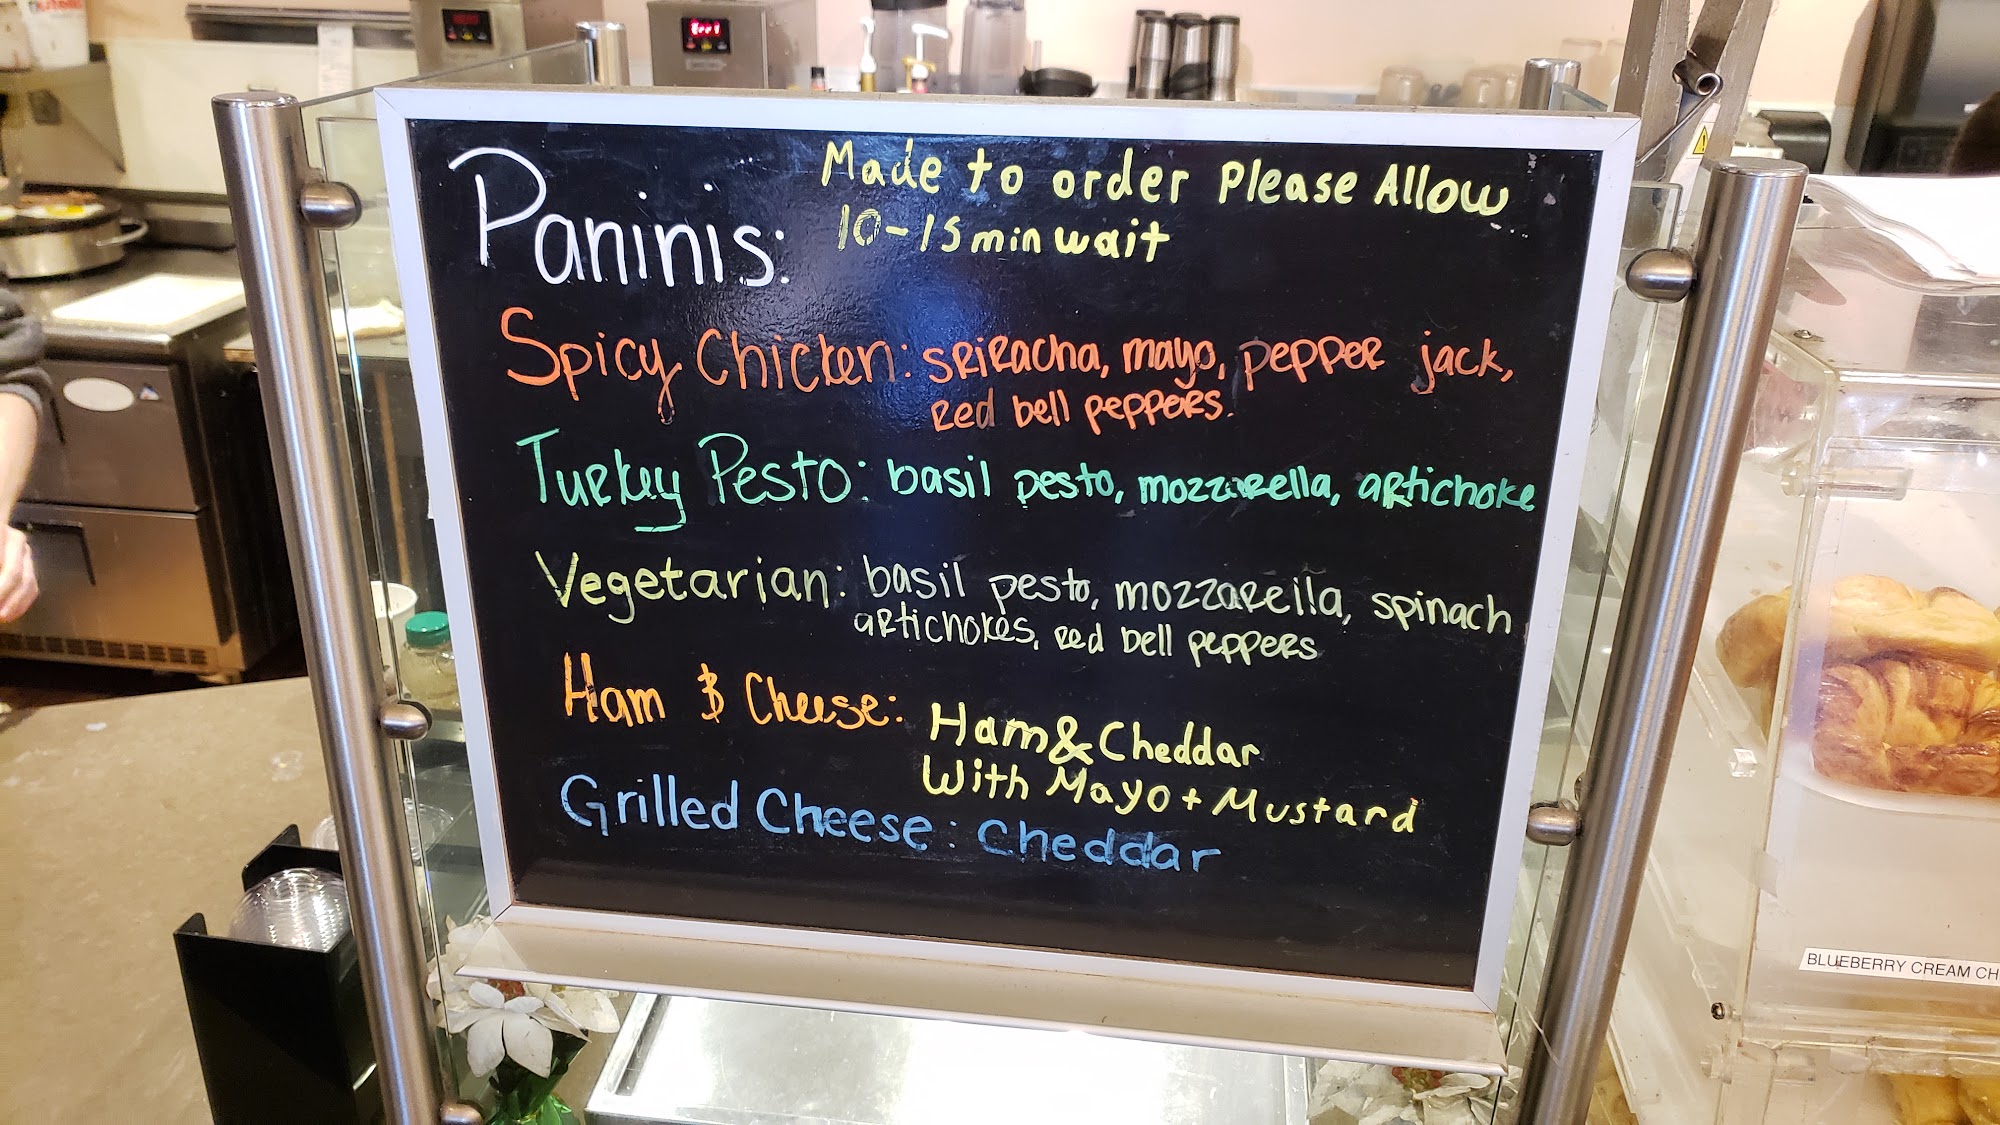 Paninis:
Made to order Please Allow
10-15 min wait
Spicy Chicken: sriracha, mayo, pepper jack,
red bell peppers.
Turkey Pesto: basil pesto, mozzarella, artichoke
Vegetarian: basil pesto, mozzarella, spinach
artichokes, red bell peppers
Ham & Cheese: Ham & Cheddar
With Mayo + Mustard
Grilled Cheese: Cheddar
BLUEBERRY CREAM CH